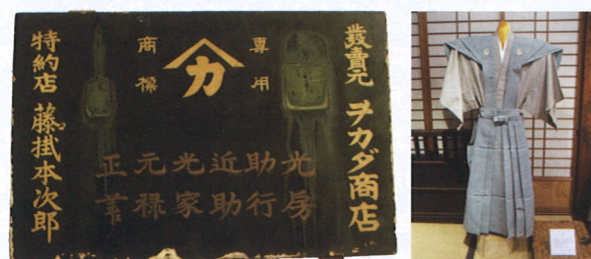 發賣元 ヲカダ商店
專用
カ
商標
光房
助行
近助
光家
元禄
正業
特約店 藤掛本次郎